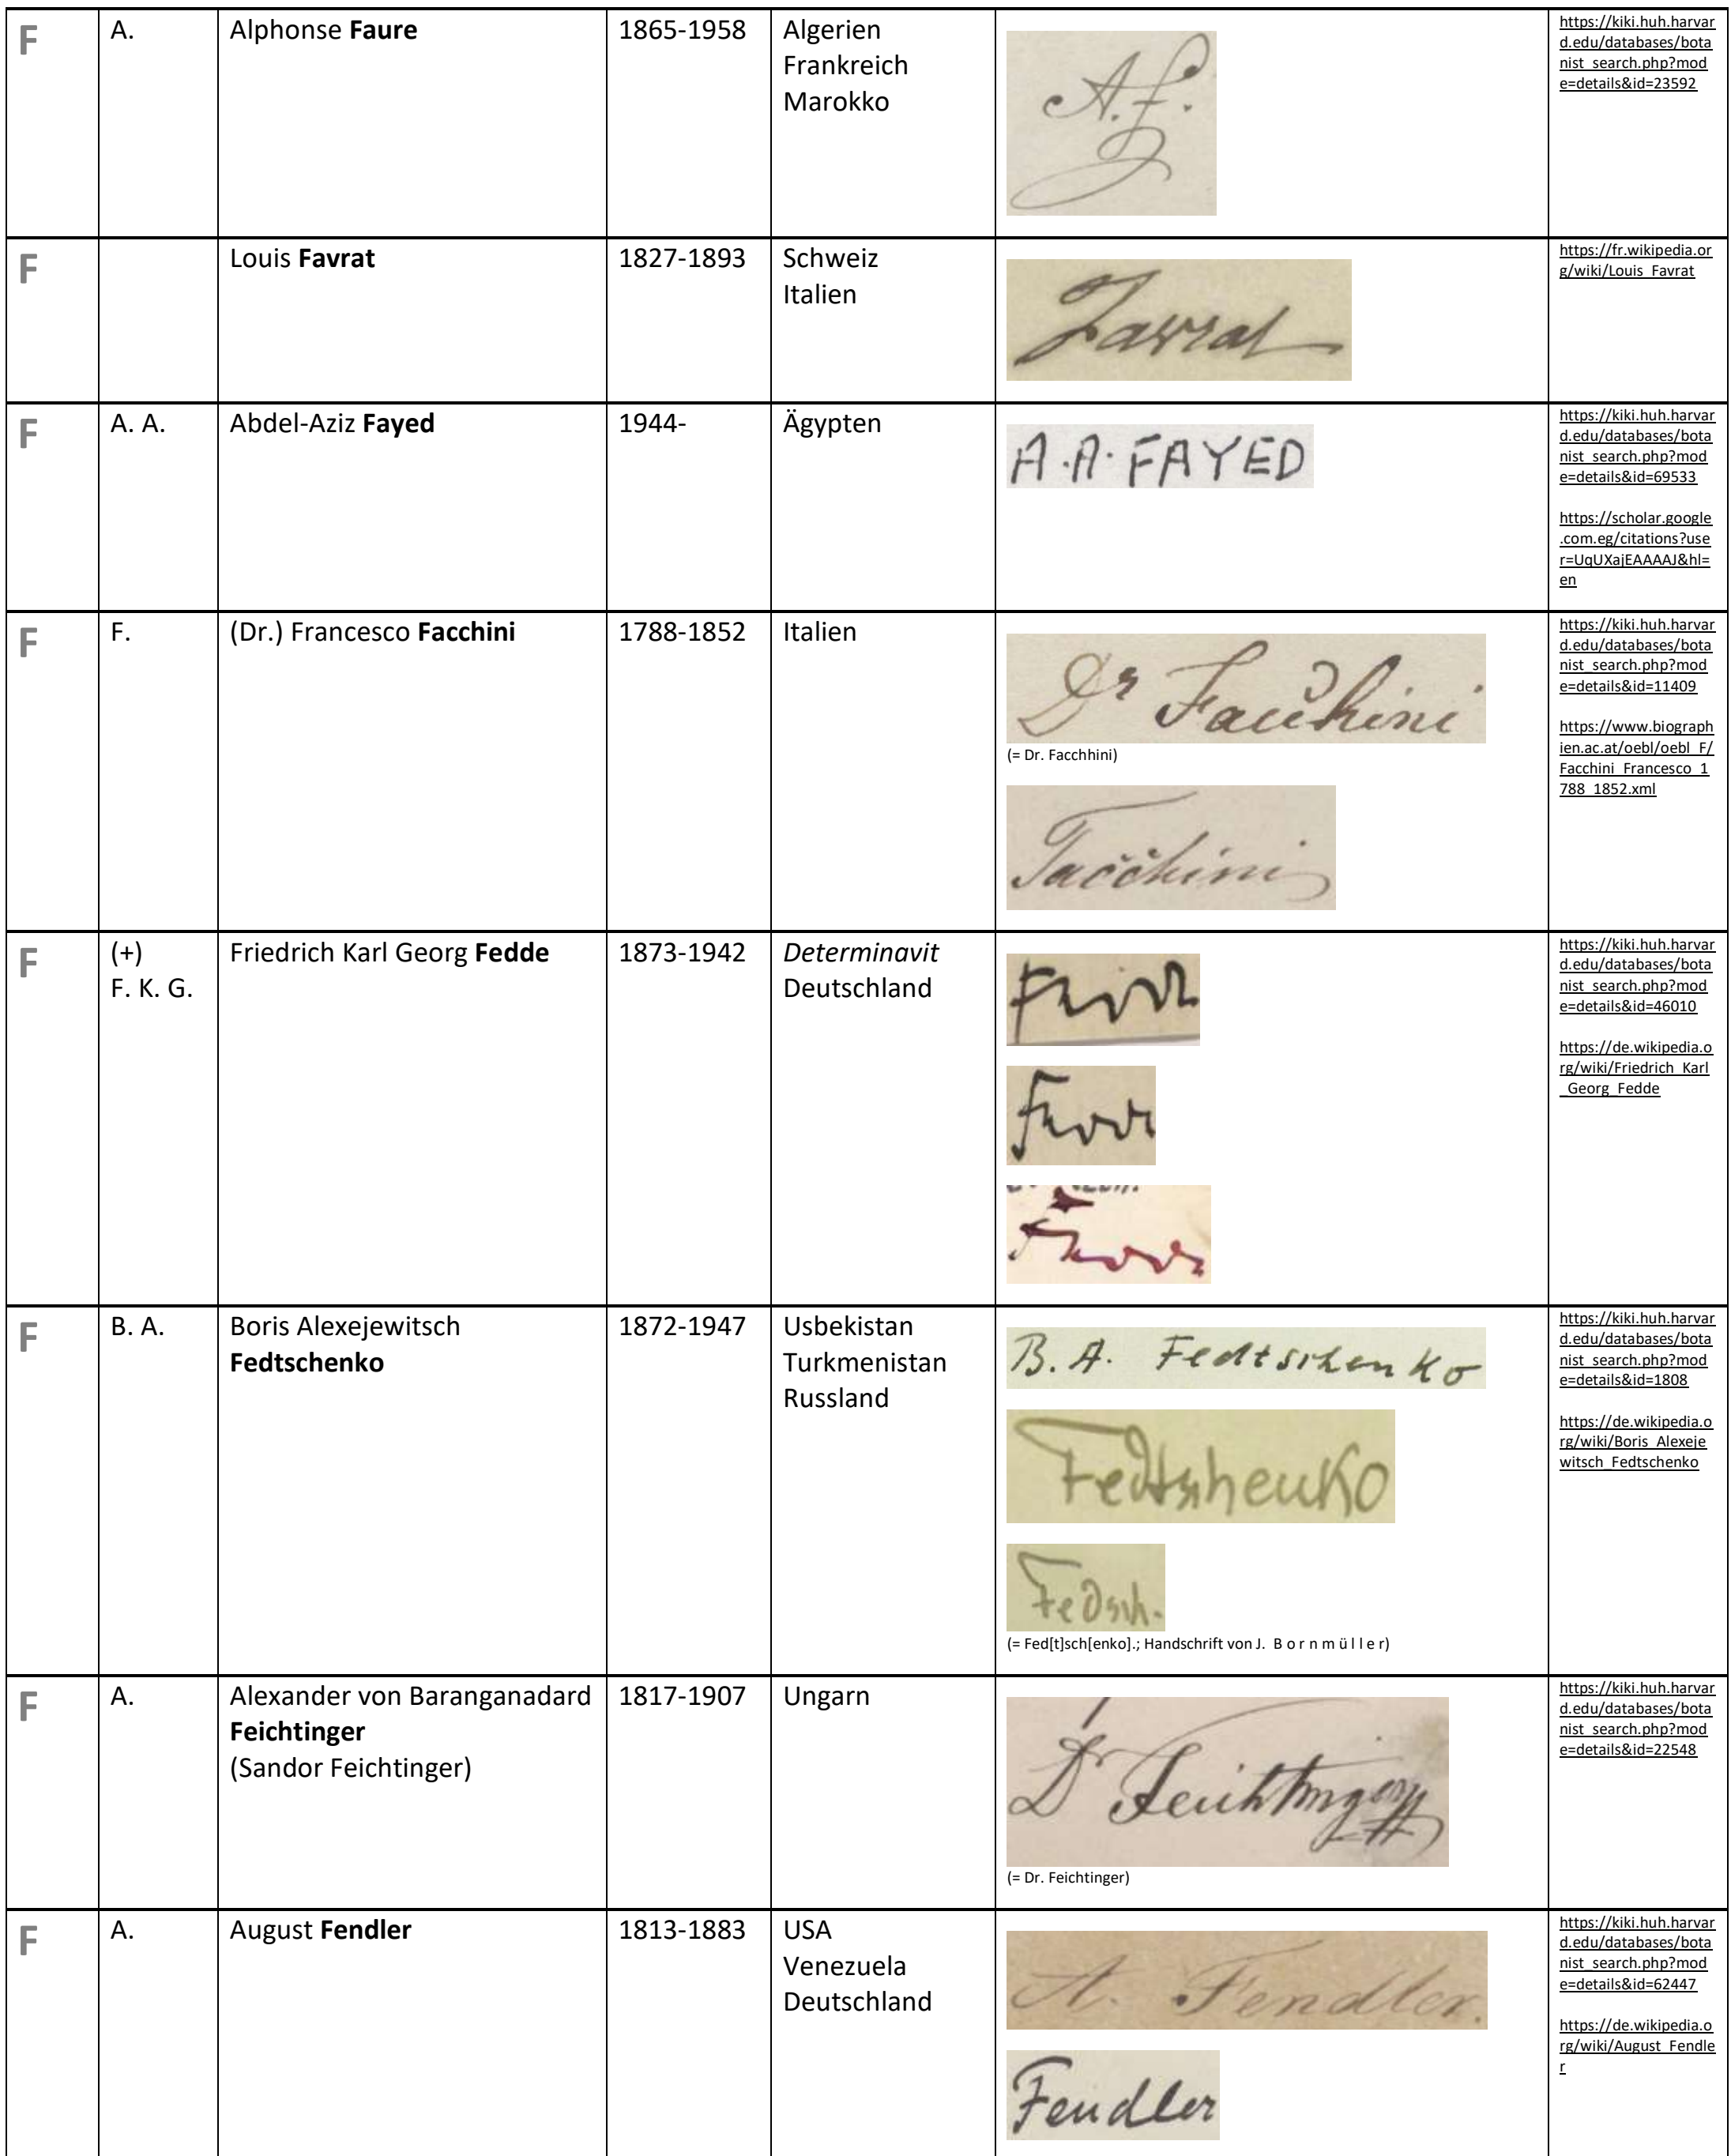 F
A.
Alphonse Faure
1865-1958
Algerien
Frankreich
Marokko
A. f.
https://kiki.huh.harvar
d.edu/databases/bota
nist_search.php?mod
e=details&id=23592
F
Louis Favrat
1827-1893
Schweiz
Italien
Favrat
https://fr.wikipedia.or
g/wiki/Louis_Favrat
F
A. A.
Abdel-Aziz Fayed
1944-
Ägypten
A.A. FAYED
https://kiki.huh.harvar
d.edu/databases/bota
nist_search.php?mod
e=details&id=69533
https://scholar.google
.com.eg/citations?use
r=UqUXajEAAAAJ&hl=
en
F
F.
(Dr.) Francesco Facchini
1788-1852
Italien
Dr Facchini
(= Dr. Facchhini)
Facchini
https://kiki.huh.harvar
d.edu/databases/bota
nist_search.php?mod
e=details&id=11409
https://www.biograph
ien.ac.at/oebl/oebl_F/
Facchini_Francesco_1
788_1852.xml
F
(+)
F. K. G.
Friedrich Karl Georg Fedde
1873-1942
Determinavit
Deutschland
Fedde
Fedde
Fedde
https://kiki.huh.harvar
d.edu/databases/bota
nist_search.php?mod
e=details&id=46010
https://de.wikipedia.o
rg/wiki/Friedrich_Karl
_Georg_Fedde
F
B. A.
Boris Alexejewitsch
Fedtschenko
1872-1947
Usbekistan
Turkmenistan
Russland
B. A. Fedtschenko
Fedtshenko
Fedsch.
(= Fed[t]sch[enko].; Handschrift von J. B o r n m ü l l e r)
https://kiki.huh.harvar
d.edu/databases/bota
nist_search.php?mod
e=details&id=1808
https://de.wikipedia.o
rg/wiki/Boris_Alexeje
witsch_Fedtschenko
F
A.
Alexander von Baranganadard
Feichtinger
(Sandor Feichtinger)
1817-1907
Ungarn
Dr Feichtinger
(= Dr. Feichtinger)
https://kiki.huh.harvar
d.edu/databases/bota
nist_search.php?mod
e=details&id=22548
F
A.
August Fendler
1813-1883
USA
Venezuela
Deutschland
A. Fendler.
Fendler
https://kiki.huh.harvar
d.edu/databases/bota
nist_search.php?mod
e=details&id=62447
https://de.wikipedia.o
rg/wiki/August_Fendle
r